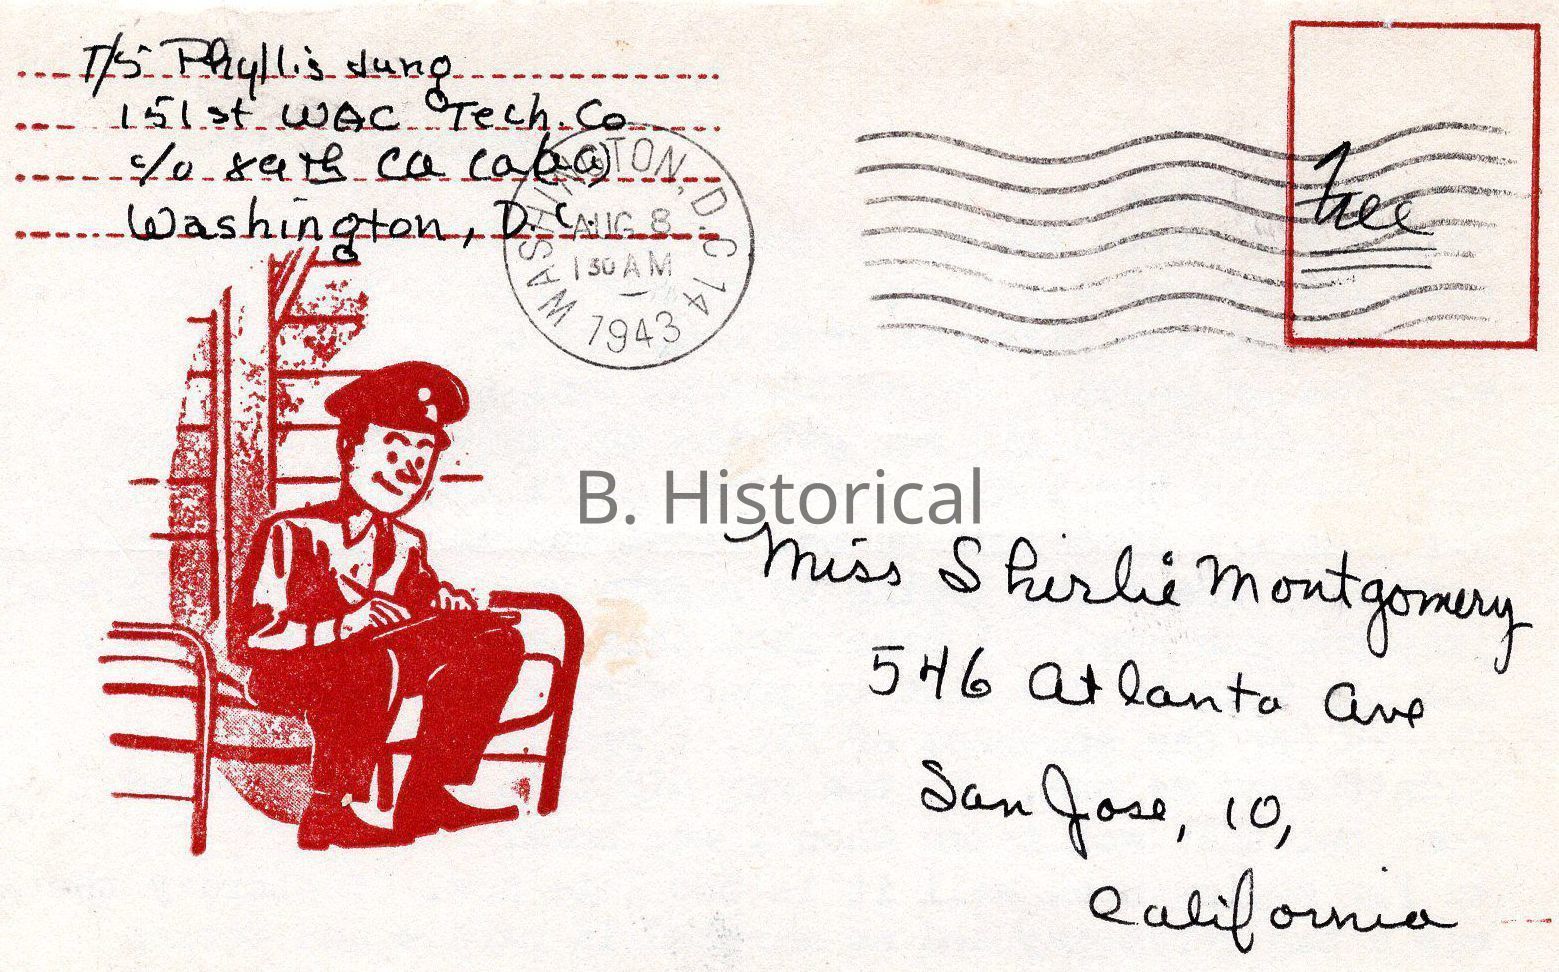 T/5 Phyllis Jung
151st WAC Tech. Co
c/o 89th CA Ca(AA)
Washington, D.C.
WASHINGTON, D.C. 14
AUG 8
1 30 AM
1943
Free
B. Historical
Miss Shirlie Montgomery
546 Atlanta Ave
San Jose, 10,
California